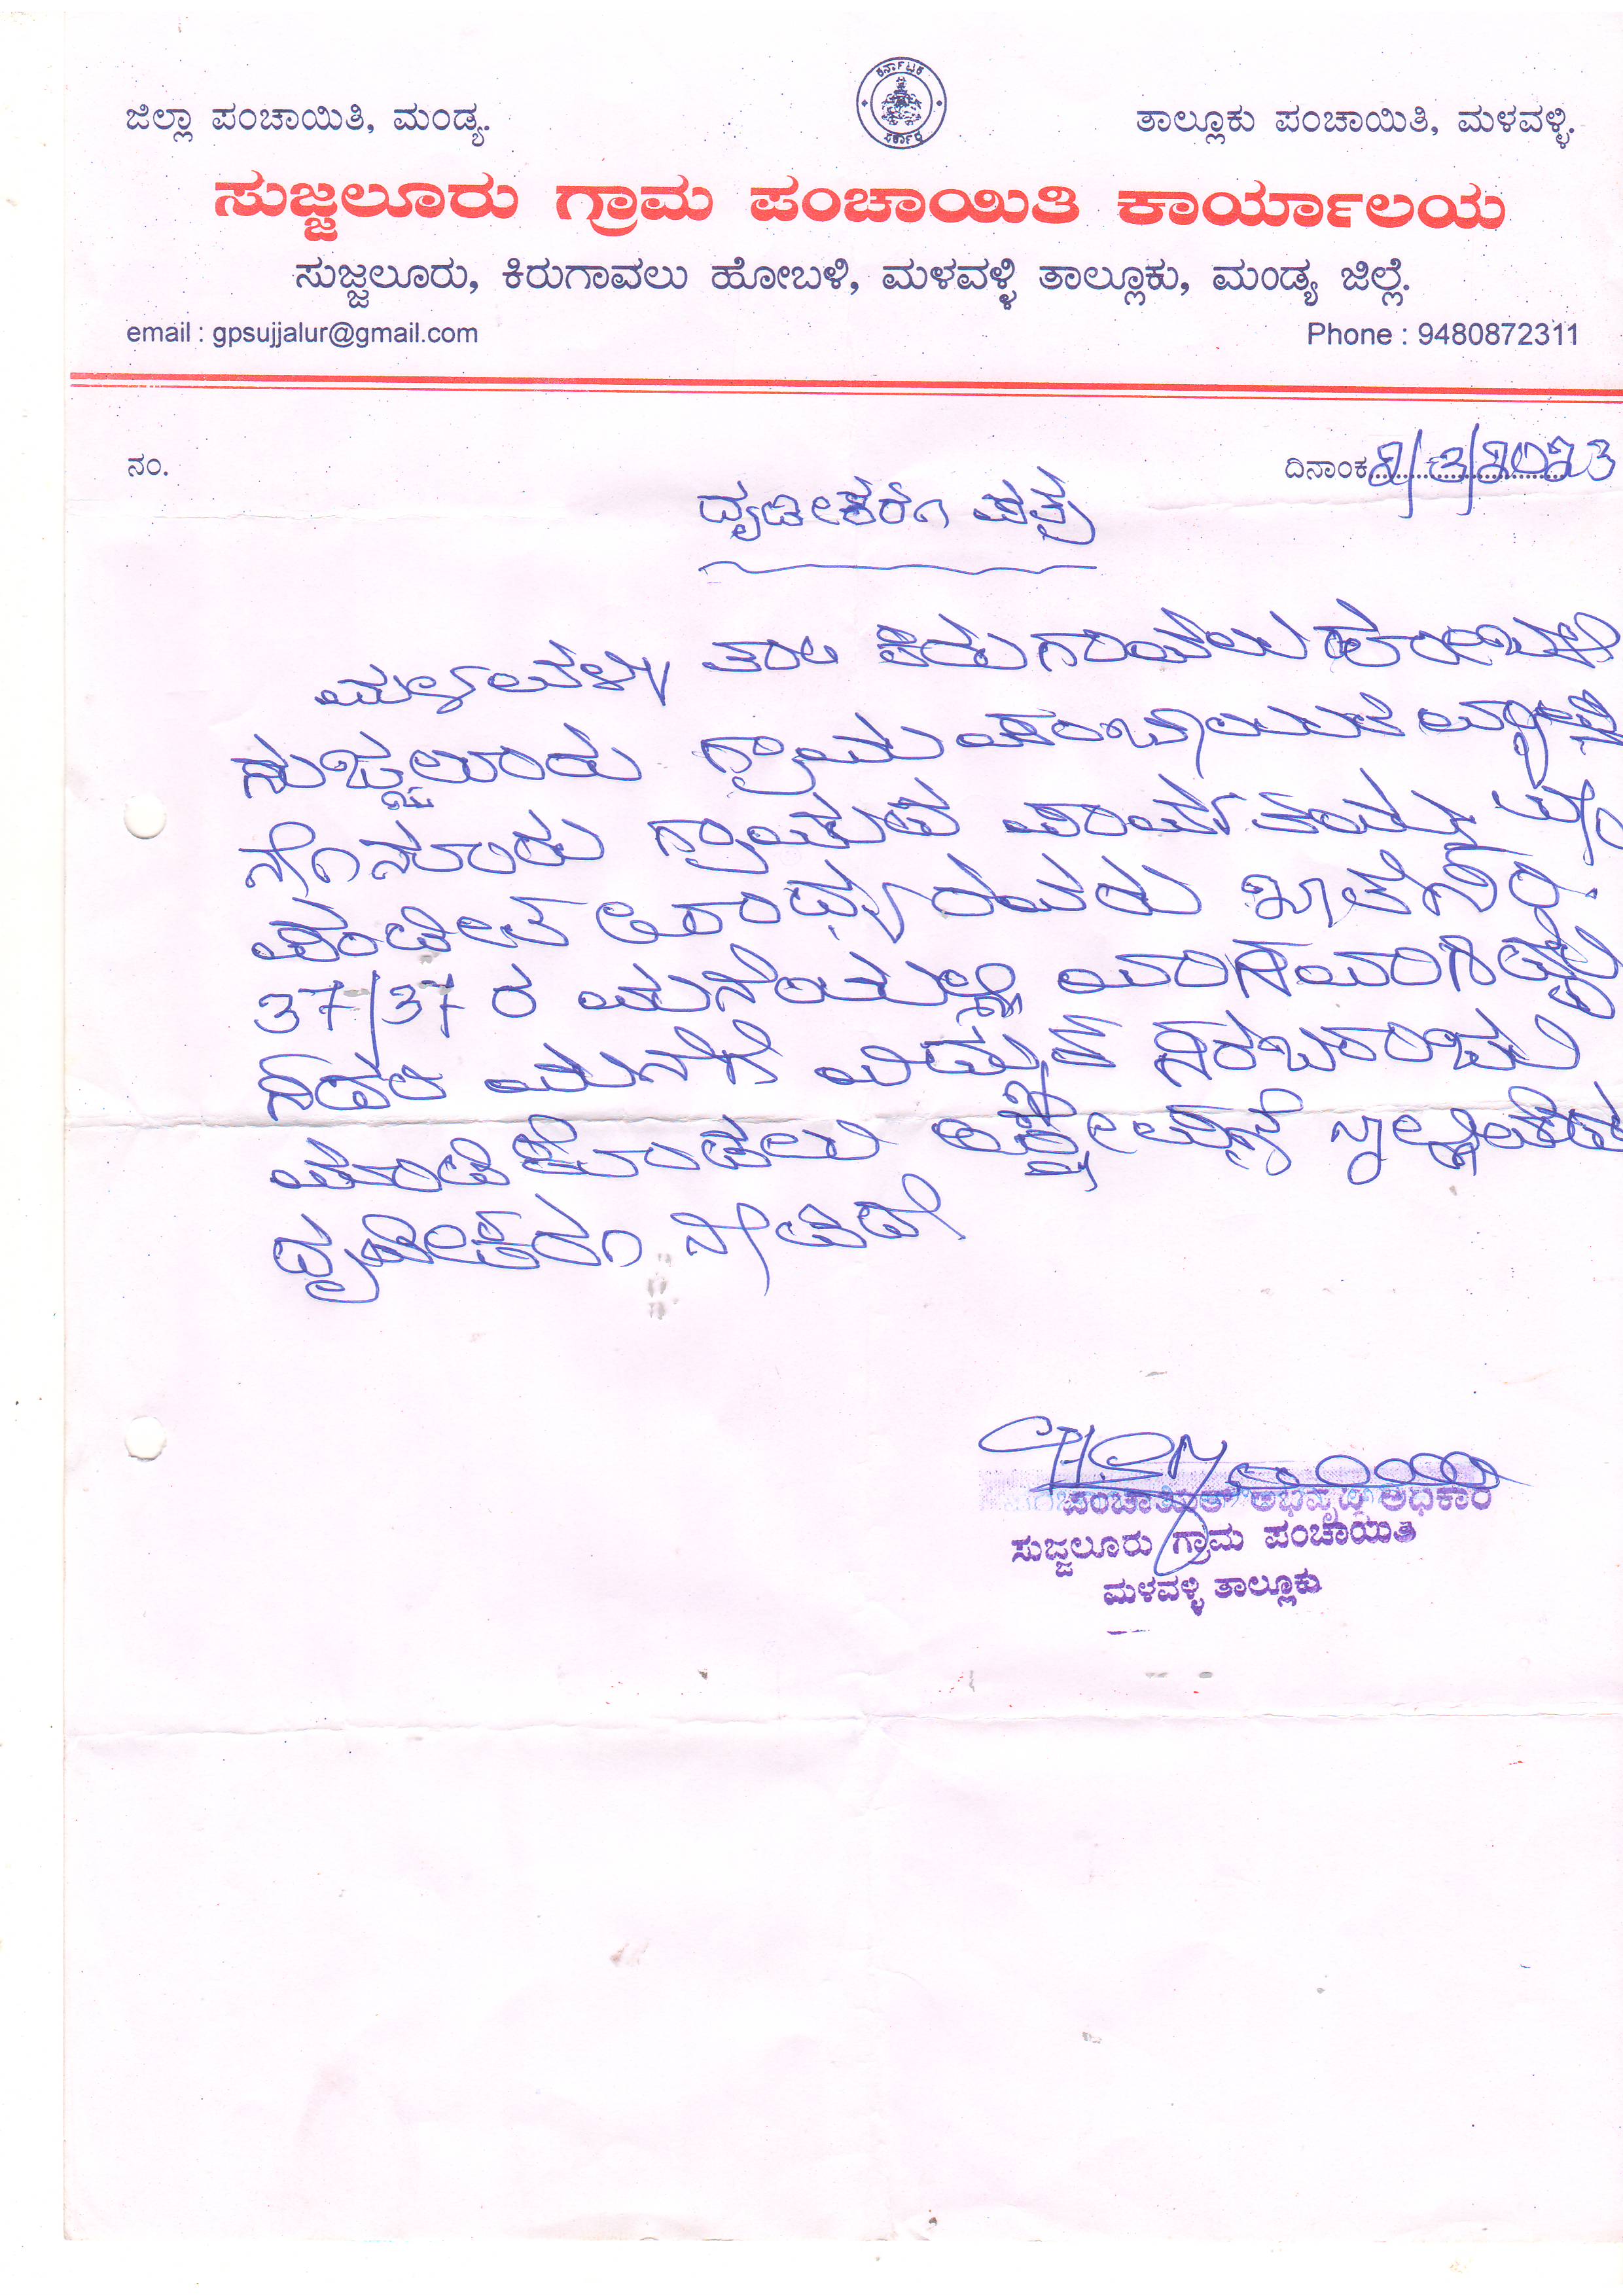 ಕರ್ನಾಟಕ ಸರ್ಕಾರ
ಜಿಲ್ಲಾ ಪಂಚಾಯಿತಿ, ಮಂಡ್ಯ. ತಾಲ್ಲೂಕು ಪಂಚಾಯಿತಿ, ಮಳವಳ್ಳಿ.
ಸುಜ್ಜಲೂರು ಗ್ರಾಮ ಪಂಚಾಯಿತಿ ಕಾರ್ಯಾಲಯ
ಸುಜ್ಜಲೂರು, ಕಿರುಗಾವಲು ಹೋಬಳಿ, ಮಳವಳ್ಳಿ ತಾಲ್ಲೂಕು, ಮಂಡ್ಯ ಜಿಲ್ಲೆ.
email : gpsujjalur@gmail.com Phone : 9480872311
ನಂ. ದಿನಾಂಕ 2/3/2023
ದೃಢೀಕರಣ ಪತ್ರ
ತಾಲ ಕಿರುಗಾವಲು ಹೋಬಳಿ
ಸುಜ್ಜಲೂರು ಗ್ರಾಮ ಪಂಚಾಯಿತಿ
ಗ್ರಾಮದ
37/37 ರ ಮನೆಯಲ್ಲಿ ವಾಸವಾಗಿದ್ದು
ಸದರಿ ಮನೆಗೆ ವಿದ್ಯುತ್ ಸರಬರಾಜು
ಮಾಡಿಕೊಡಲು
ದೃಢೀಕರಣ ನೀಡಿದೆ
ಪಂಚಾಯಿತಿ ಅಭಿವೃದ್ಧಿ ಅಧಿಕಾರಿ
ಸುಜ್ಜಲೂರು ಗ್ರಾಮ ಪಂಚಾಯಿತಿ
ಮಳವಳ್ಳಿ ತಾಲ್ಲೂಕು